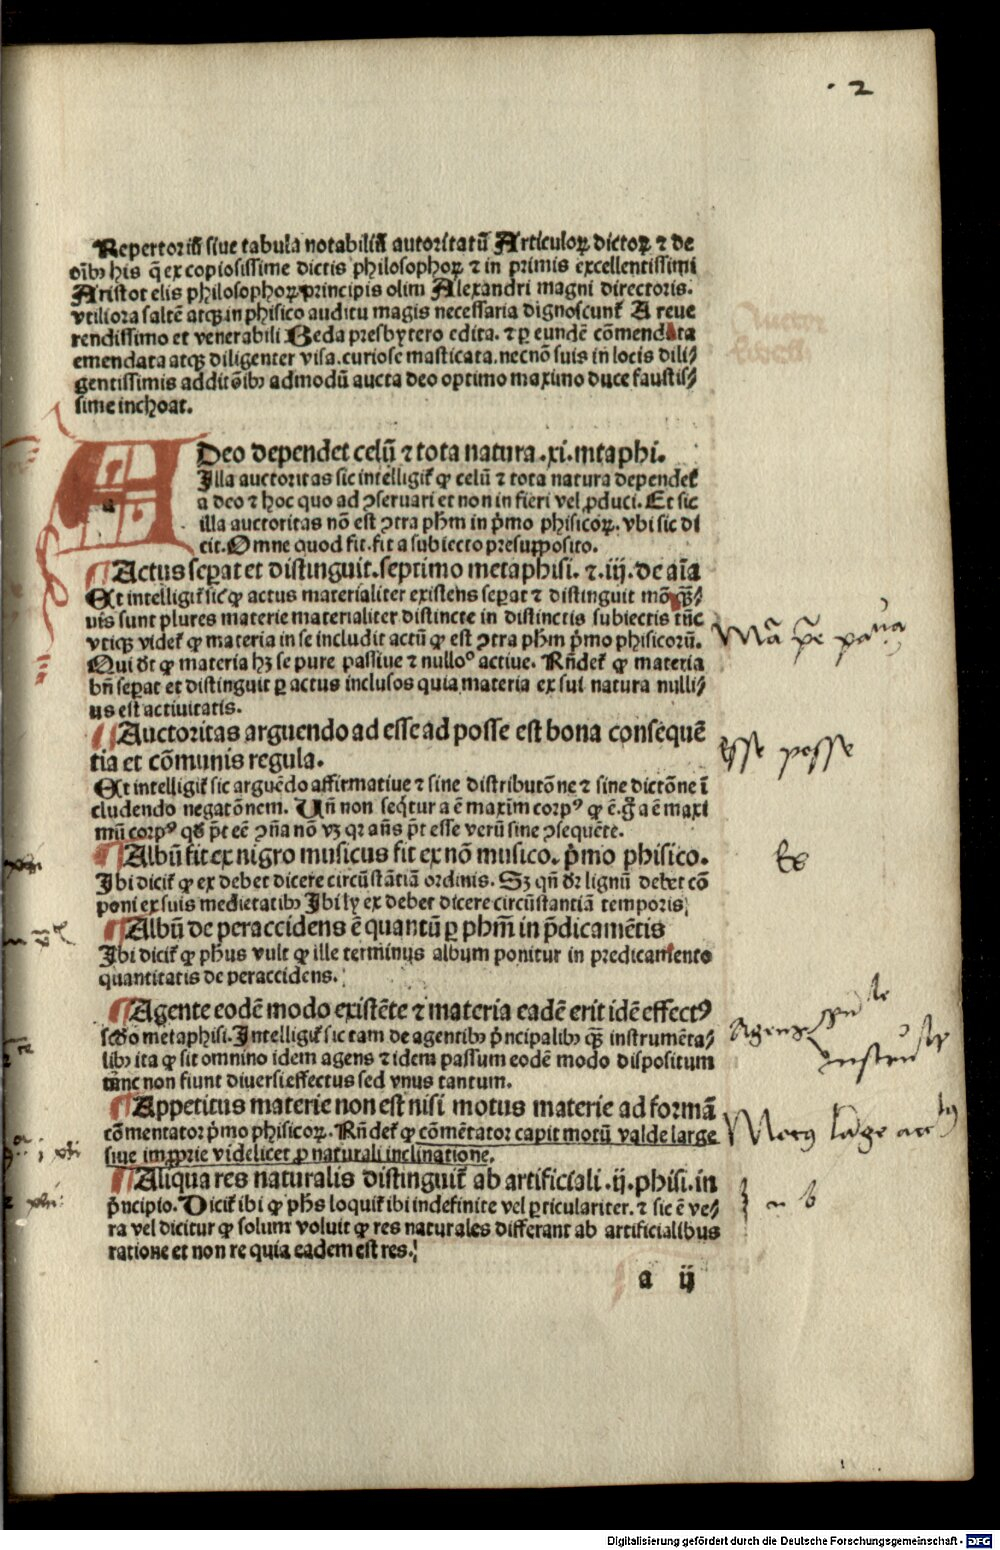 · 2
Repertoriū siue tabula notabiliū autoritatū Articuloꝝ dictoꝝ ⁊ de
oībꝰ his q̄ ex copiosissime dictis philosophoꝝ ⁊ in primis excellentissimi
Aristot elis philosophoꝝ principis olim Alexandri magni directoris.
vtiliora saltē atqꝫ in phisico auditu magis necessaria dignoscunt᷑ A reue
rendissimo et venerabili Beda presbytero edita. ⁊ ꝑ eundē cōmendata
emendata atqꝫ diligenter visa. curiose masticata. necnō suis in locis dili⸗
gentissimis additōibꝰ admodū aucta deo optimo maximo duce faustis⸗
sime inchoat.
A Deo dependet celū ⁊ tota natura .xi. mtaphi.
Illa auctoritas sic intelligit᷑ ꝙ celū ⁊ tota natura dependet
a deo ⁊ hoc quo ad ꝯseruari et non in fieri vel ꝓduci. Et sic
illa auctoritas nō est ꝯtra phm̄ in p̄mo phisicoꝝ. vbi sic di
cit. Omne quod fit. fit a subiecto presupposito.
¶ Actus seꝑat et distinguit. septimo metaphisi. ⁊ .iij. de aīa
Et intelligit᷑ sic ꝙ actus materialiter existens seꝑat ⁊ distinguit
uis sunt plures materie materialiter distincte in distinctis subiectis tūc
vtiqꝫ videt᷑ ꝙ materia in se includit actū ꝙ est ꝯtra phm̄ p̄mo phisicorū.
Qui dr̄t ꝙ materia hꝫ se pure passiue ⁊ nulloº actiue. Rn̄det᷑ ꝙ materia
bn̄ seꝑat et distinguit ꝑ actus inclusos quia materia ex sui natura nulli⸗
us est actiuitatis.
¶ Auctoritas arguendo ad esse ad posse est bona consequē
tia et cōmunis regula.
Et intelligit᷑ sic arguēdo affirmatiue ⁊ sine distributōne ⁊ sine dictōne ī
cludendo negatōnem. Vn̄ non seq̄tur a ē maxīm corpꝰ ꝙ ē. g̊ a ē maxi
mū corpꝰ qd̄ p̄t eē ꝯn̄a nō vꝫ qr an̄s p̄t esse verū sine ꝯsequēte.
¶ Albū fit ex nigro musicus fit ex nō musico. p̄mo phisico.
Ibi dicit᷑ ꝙ ex debet dicere circūstātiā ordinis. Sꝫ qn̄ dr̄ lignū debet cō
poni ex suis medietatibꝰ Ibi ly ex debet dicere circūstantiā temporis.
¶ Albū de peraccidens ē quantū ꝑ phm̄ in p̄dicamētis
Ibi dicit᷑ ꝙ phūs vult ꝙ ille terminus album ponitur in predicamento
quantitatis de peraccidens.
¶ Agente eodē modo existēte ⁊ materia eadē erit idē effectꝰ
scdo metaphisi. Intelligit᷑ sic tam de agentibꝰ p̄ncipalibꝰ qꝫ̄ instrumēta⸗
libꝰ ita ꝙ sit omnino idem agens ⁊ idem passum eodē modo dispositum
tūnc non fiunt diuersi effectus sed vnus tantum.
¶ Appetitus materie non est nisi motus materie ad formā
cōmentator p̄mo phisicoꝝ. Rn̄det᷑ ꝙ cōmētator capit motū valde large
siue impꝓprie videlicet ꝓ naturali inclinatione.
¶ Aliqua res naturalis distinguit᷑ ab artificiali .ij. phisi. in
p̄ncipio. Dicit᷑ ibi ꝙ phs̄ loquit᷑ ibi indefinite vel ꝑticulariter. ⁊ sic ē ve⸗
ra vel dicitur ꝙ solum voluit ꝙ res naturales differant ab artificialibus
ratione et non re quia eadem est res.
a ij
esse posse
Ex
Agens
n b
Digitalisierung gefördert durch die Deutsche Forschungsgemeinschaft - DFG